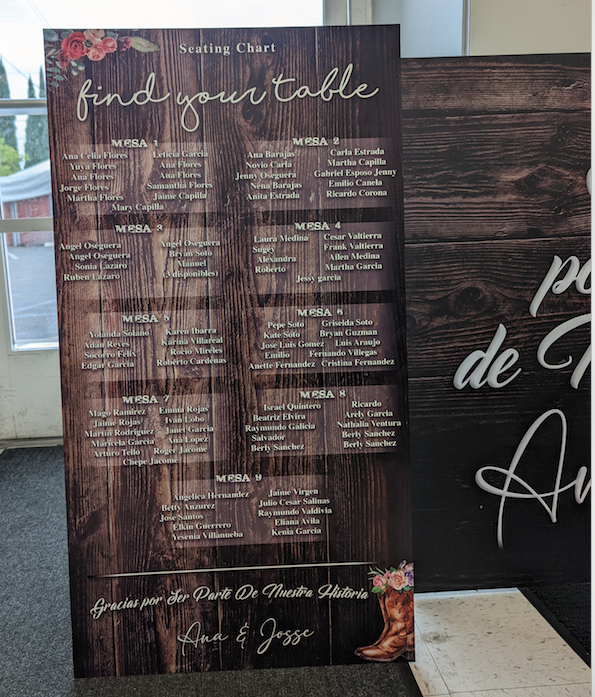 Seating Chart
find your table
MESA 1
Ana Celia Flores
Yuya Flores
Ana Flores
Jorge Flores
Martha Flores
Leticia Garcia
Ana Flores
Ana Flores
Samantha Flores
Jaime Capilla
Mary Capilla
MESA 2
Ana Barajas
Novio Carla
Jenny Oseguera
Nena Barajas
Anita Estrada
Carla Estrada
Martha Capilla
Gabriel Esposo Jenny
Emilio Canela
Ricardo Corona
MESA 3
Angel Oseguera
Angel Oseguera
Sonia Lazaro
Ruben Lazaro
Angel Oseguera
Bryan Soto
Manuel
(3 disponibles)
MESA 4
Laura Medina
Sugey
Alexandra
Roberto
Cesar Valtierra
Frank Valtierra
Allen Medina
Martha Garcia
Jessy garcia
MESA 5
Yolanda Solano
Adan Reyes
Socorro Felix
Edgar Garcia
Karen Ibarra
Karina Villareal
Rocio Mireles
Roberto Cardenas
MESA 6
Pepe Soto
Kate Soto
Jose Luis Gomez
Emilio
Anette Fernandez
Griselda Soto
Bryan Guzman
Luis Araujo
Fernando Villegas
Cristina Fernandez
MESA 7
Mago Ramirez
Jaime Rojas
Martin Rodriguez
Maricela Garcia
Arturo Tello
Emma Rojas
Ivan Lobo
Janet Garcia
Ana Lopez
Roger Jacome
Chepe Jacome
MESA 8
Israel Quintero
Beatriz Elvira
Raymundo Galicia
Salvador
Berly Sanchez
Ricardo
Arely Garcia
Nathalia Ventura
Berly Sanchez
Berly Sanchez
MESA 9
Angelica Hernandez
Betty Anzurez
Jose Santos
Elkin Guerrero
Yesenia Villanueba
Jaime Virgen
Julio Cesar Salinas
Raymundo Valdivia
Eliana Avila
Kenia Garcia
Gracias por Ser Parte De Nuestra Historia
Ana & Josse
de